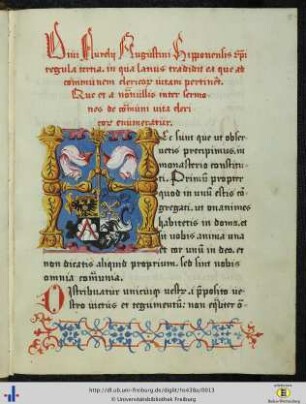 Diui Aurelij Augustini Hipponensis epi
regula tertia, in qua latius tradidit ea que ad
communem clericor uitam pertinet.
Que et a nonnullis inter sermo-
nes de comuni uita cleri
cor enumeratur.
Ec sunt que ut obser-
uetis precipimus, in
monasterio constitu-
ti. Primum propter
quod in unum estis co
gregati, ut unanimes
habitetis in domo, et
sit uobis anima una
et cor unum in deo, et
non dicatis aliquid proprium, sed sint uobis
omnia communia.
Distribuatur unicuiq uestru a preposito ue-
stro uictus et tegumentum: non equiter o-
http://dl.ub.uni-freiburg.de/diglit/hs426a/0013
© Universitätsbibliothek Freiburg
Baden-Württemberg